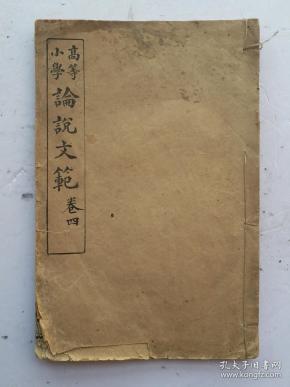 高等
小學
論說文範
卷四
孔夫子旧书网